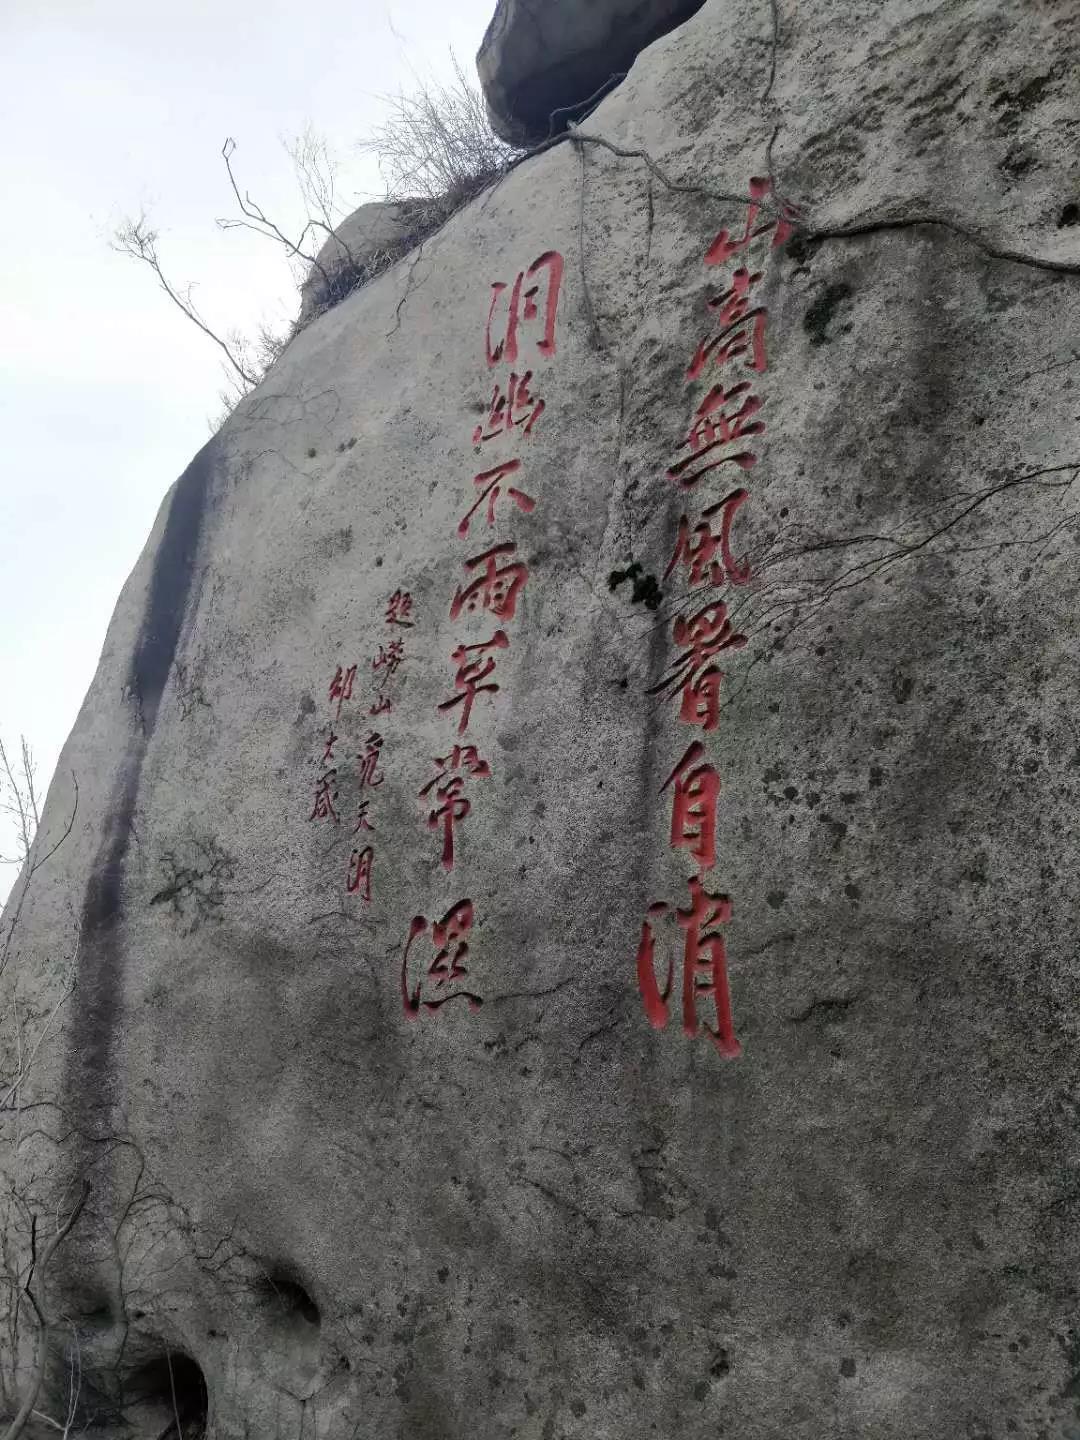 山高無風暑自消
洞幽不雨草常濕
題嶗山覓天洞
邹大威